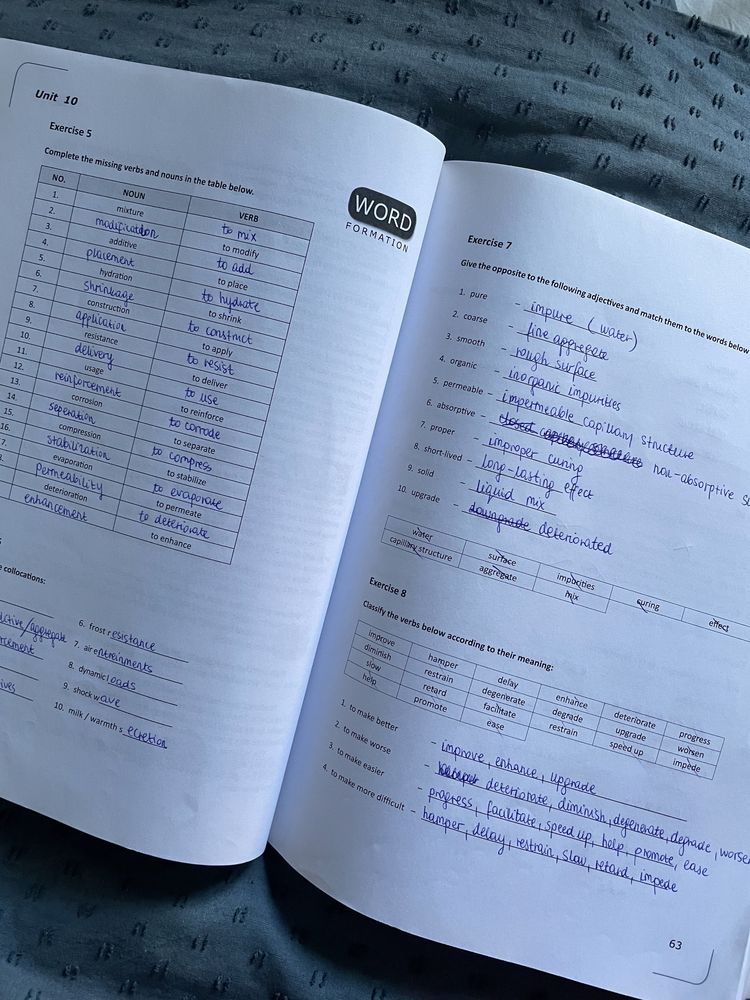 Unit 10
Exercise 5
Complete the missing verbs and nouns in the table below.
NO. NOUN VERB
1. mixture to mix
2. modification to modify
3. additive to add
4. placement to place
5. hydration to hydrate
6. shrinkage to shrink
7. construction to construct
8. application to apply
9. resistance to resist
10. delivery to deliver
11. usage to use
12. reinforcement to reinforce
13. corrosion to corrode
14. seperation to separate
15. compression to compress
16. stabilization to stabilize
7. evaporation to evaporate
permeability to permeate
deterioration to deteriorate
enhancement to enhance
WORD
FORMATION
collocations:
/aggregate
ives
6. frost resistance
7. air entrainments
8. dynamic loads
9. shock wave
10. milk / warmth secretion
Exercise 7
Give the opposite to the following adjectives and match them to the words below
1. pure - impure (water)
2. coarse - fine aggregate
3. smooth - rough surface
4. organic - inorganic impurities
5. permeable - impermeable capillary structure
6. absorptive - closed non-absorptive
7. proper - improper curing
8. short-lived - long-lasting effect
9. solid - liquid mix
10. upgrade - downgrade deteriorated
water surface impurities curing effect
capillary structure aggregate mix
Exercise 8
Classify the verbs below according to their meaning:
improve hamper delay enhance deteriorate progress
diminish restrain degenerate degrade upgrade worsen
slow retard facilitate restrain speed up impede
help promote ease
1. to make better - improve, enhance, upgrade
2. to make worse - deteriorate, diminish, degenerate, degrade, worsen
3. to make easier - progress, facilitate, speed up, help, promote, ease
4. to make more difficult - hamper, delay, restrain, slow, retard, impede
63